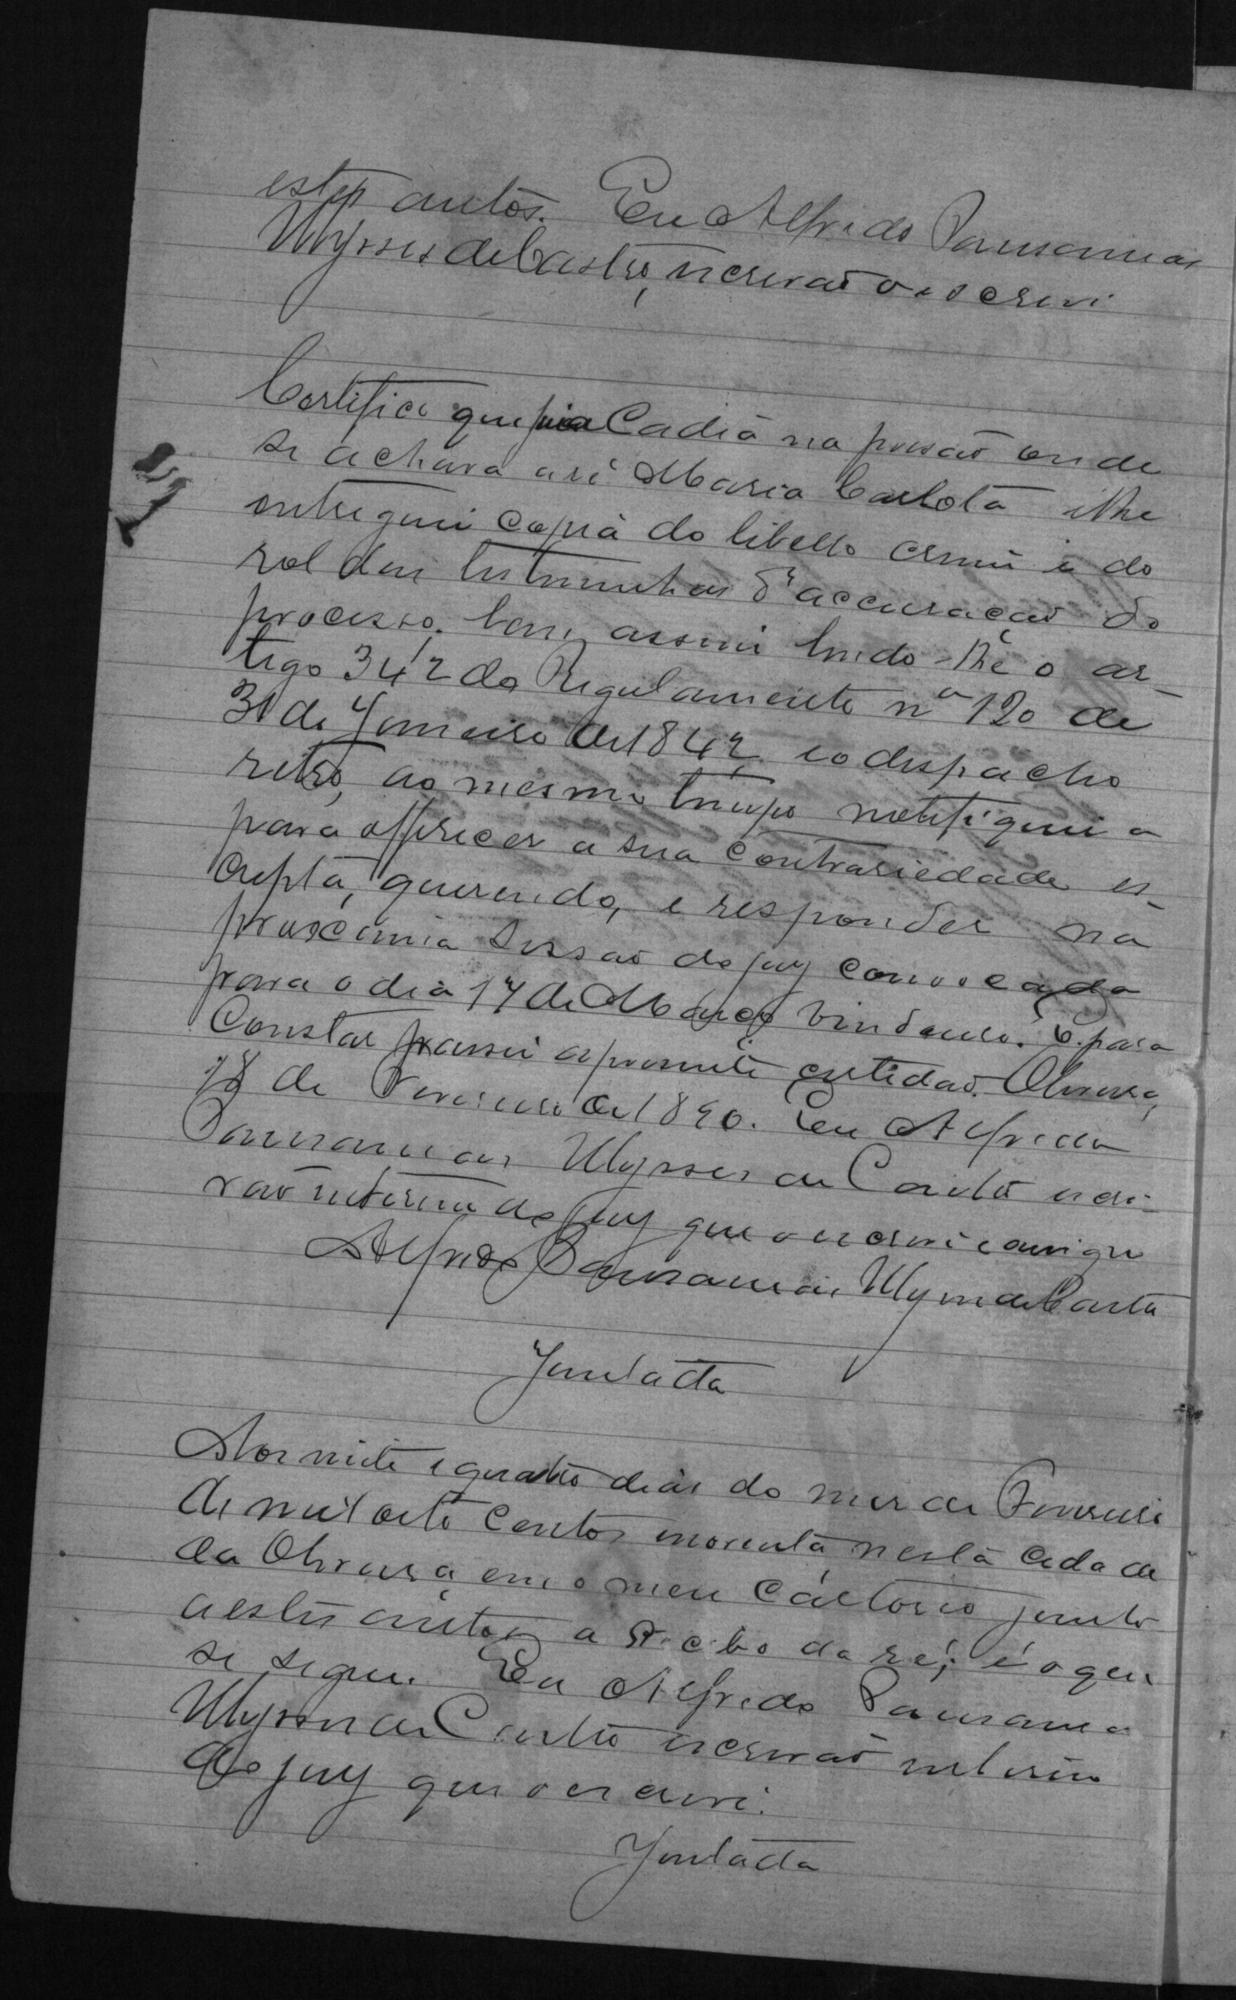 estes autos. Eu Alfredo Pausanias
Ulysses de Castro, escrivaõ o escrevi
Certifico que fui a Cadiã na prisaõ onde
se achava a ré Maria Carlota e lhe
entreguei copiã do libello crime e do
rol das testemunhas d'accusaçaõ do
processo, bem assim lendo-lhe o ar-
tigo 342 do Regulamento nº 120 de
31 de Janeiro de 1842 e o despacho
retro, ao mesmo tempo notifiquei a
para offerecer a sua contrariedade es-
cripta, querendo, e responder na
proxcimia Sessaõ do jury convocada
para o dia 17 de Março vindouro. E para
Constar passei a presente certidaõ. Oliveira,
18 de Fevereiro de 1890. Eu Alfredo
Pausanias Ulysses de Castro escri-
vaõ interino do jury que o escrevi e assigno
Alfredo Pausanias Ulysses de Castro
Juntada
Aos vinte e quatro dias do mez de Fevereiro
de mil oito centos noventa nesta Cidade
da Oliveira, em o meu Cartorio junto
a estes autos a recibo da ré; é o que
se segue. Eu Alfredo Pausanias
Ulysses de Castro escrivaõ interino
do jury que o escrevi.
Juntada